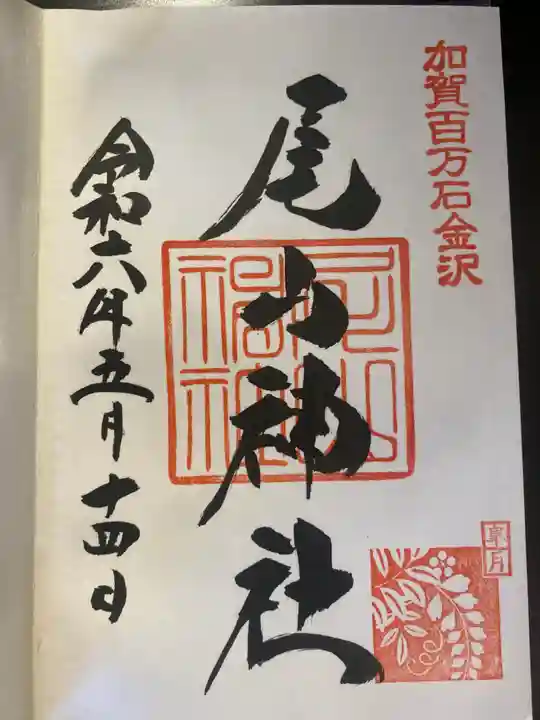 加賀百万石金沢
尾山神社
皐月
令和六年五月十四日